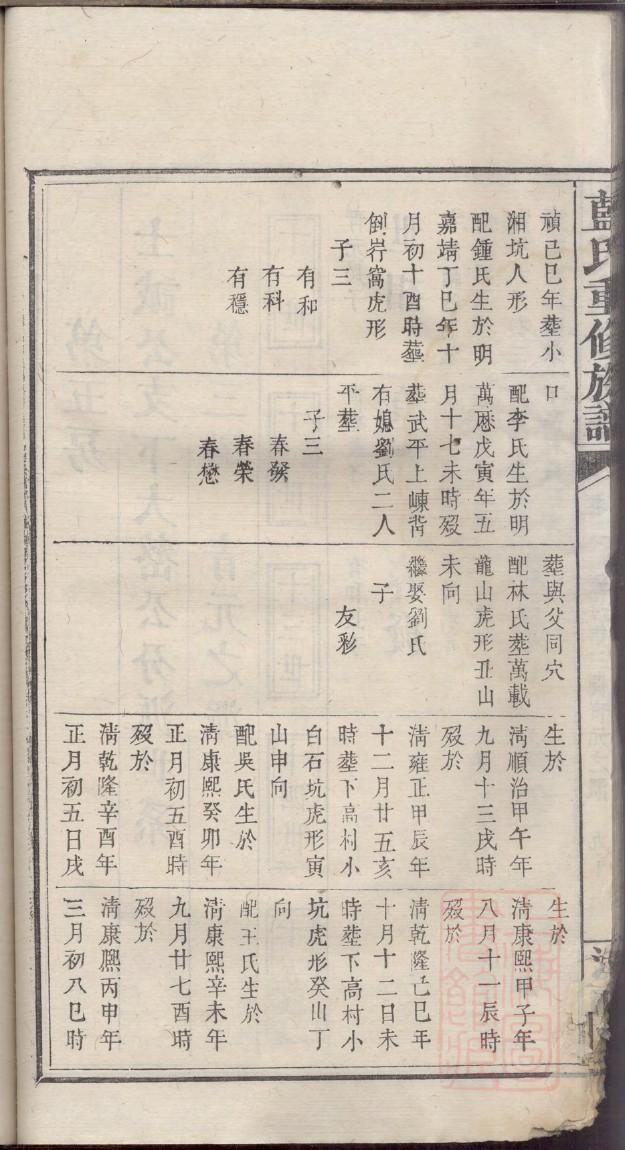 藍氏重修族譜
禎己巳年塟小
湘坑人形
配鍾氏生於明
嘉靖丁巳年十
月初十酉時塟
倒岃窩虎形
子三
有和
有科
有穩
口
配李氏生於明
萬曆戊寅年五
月十七未時歿
塟武平上崠背
有媳劉氏二人
平塟
子三
春發
春榮
春懋
塟與父同穴
配林氏塟萬載
龍山虎形丑山
未向
繼娶劉氏
子
友彩
生於
淸順治甲午年
九月十三戌時
歿於
淸雍正甲辰年
十二月廿五亥
時塟下高村小
白石坑虎形寅
山申向
配吳氏生於
淸康熙癸卯年
正月初五酉時
歿於
淸乾隆辛酉年
正月初五日戌
生於
淸康熙甲子年
八月十一辰時
歿於
淸乾隆己巳年
十月十二日未
時塟下高村小
坑虎形癸山丁
向
配王氏生於
淸康熙辛未年
九月廿七酉時
歿於
淸康熙丙申年
三月初八巳時